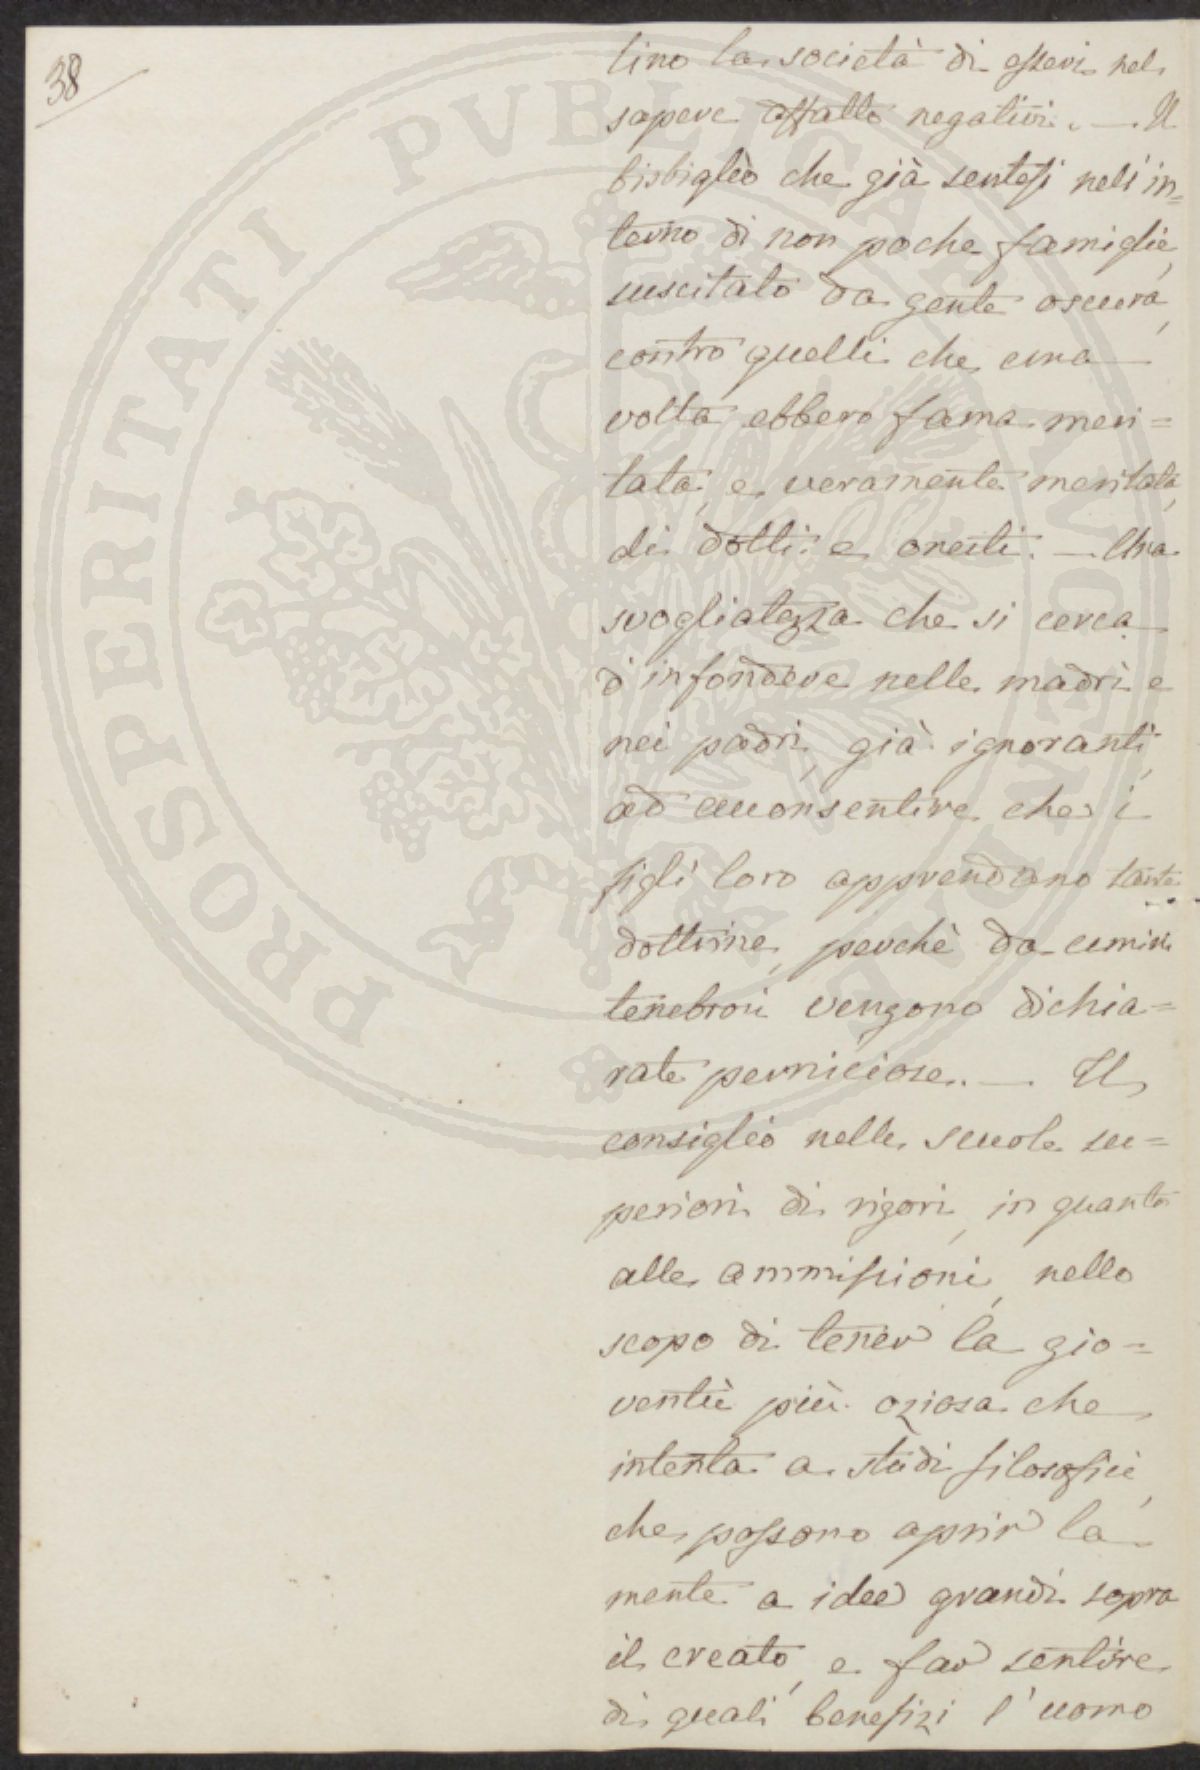 38
tino la società di esservi nel
sapere affatto negativi. — Il
bisbiglio che già sentesi nell'in=
terno di non poche famiglie,
suscitato da gente oscura,
contro quelli che una
volta ebbero fama meri=
tata, e veramente meritata,
di dotti e onesti. — Una
svogliatezza che si cerca
d'infondere nelle madri e
nei padri, già ignoranti,
ad acconsentire che i
figli loro apprendano tante
dottrine, perchè da uomini
tenebrosi vengono dichia=
rate perniciose. — Il
consiglio nelle scuole su=
periori di rigori, in quanto
alle ammissioni, nello
scopo di tener la gio=
ventù più oziosa che
intenta a studi filosofici,
che possono aprir la
mente a idee grandi sopra
il creato, e far sentire
di quali benefizi l'uomo
PROSPERITATI PVBLICAE AVGENDAE